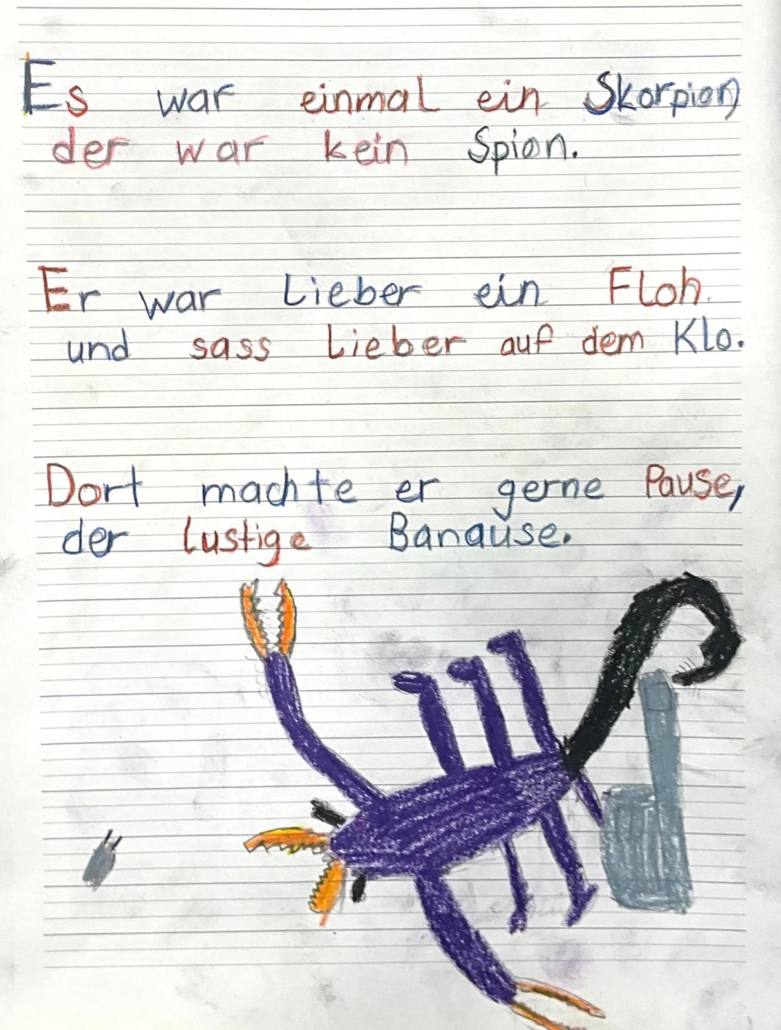 Es war einmal ein Skorpion,
der war kein Spion.
Er war Lieber ein Floh
und sass Lieber auf dem Klo.
Dort machte er gerne Pause,
der lustige Banause.